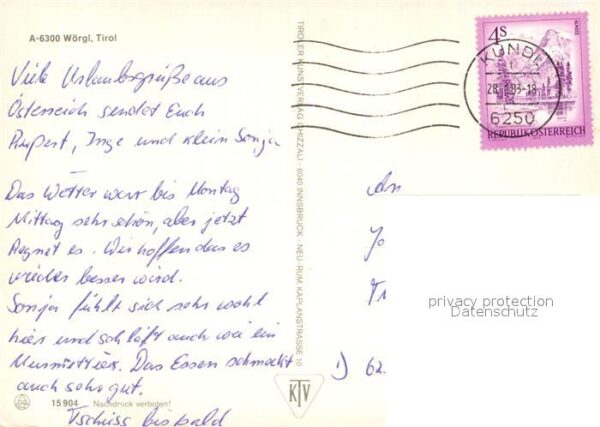 A-6300 Wörgl, Tirol
Viele Urlaubsgrüße aus
Österreich sendet Euch
Rupert, Inge und klein Sonja
Das Wetter war bis Montag
Mittag sehr schön, aber jetzt
Regnet es. Wir hoffen das es
wieder besser wird.
Sonja fühlt sich sehr wohl
hier und schläft auch wie ein
Murmeltier. Das Essen schmeckt
auch sehr gut.
Tschüss bis bald
15904 Nachdruck verboten!
TIROLER KUNSTVERLAG CHIZZALI · 6040 INNSBRUCK · NEU-RUM, KAPLANSTRASSE 10
KTV
4S
ALMSEE
REPUBLIK ÖSTERREICH
KUNDL
6250
An
Jo
Tr
62
privacy protection
Datenschutz